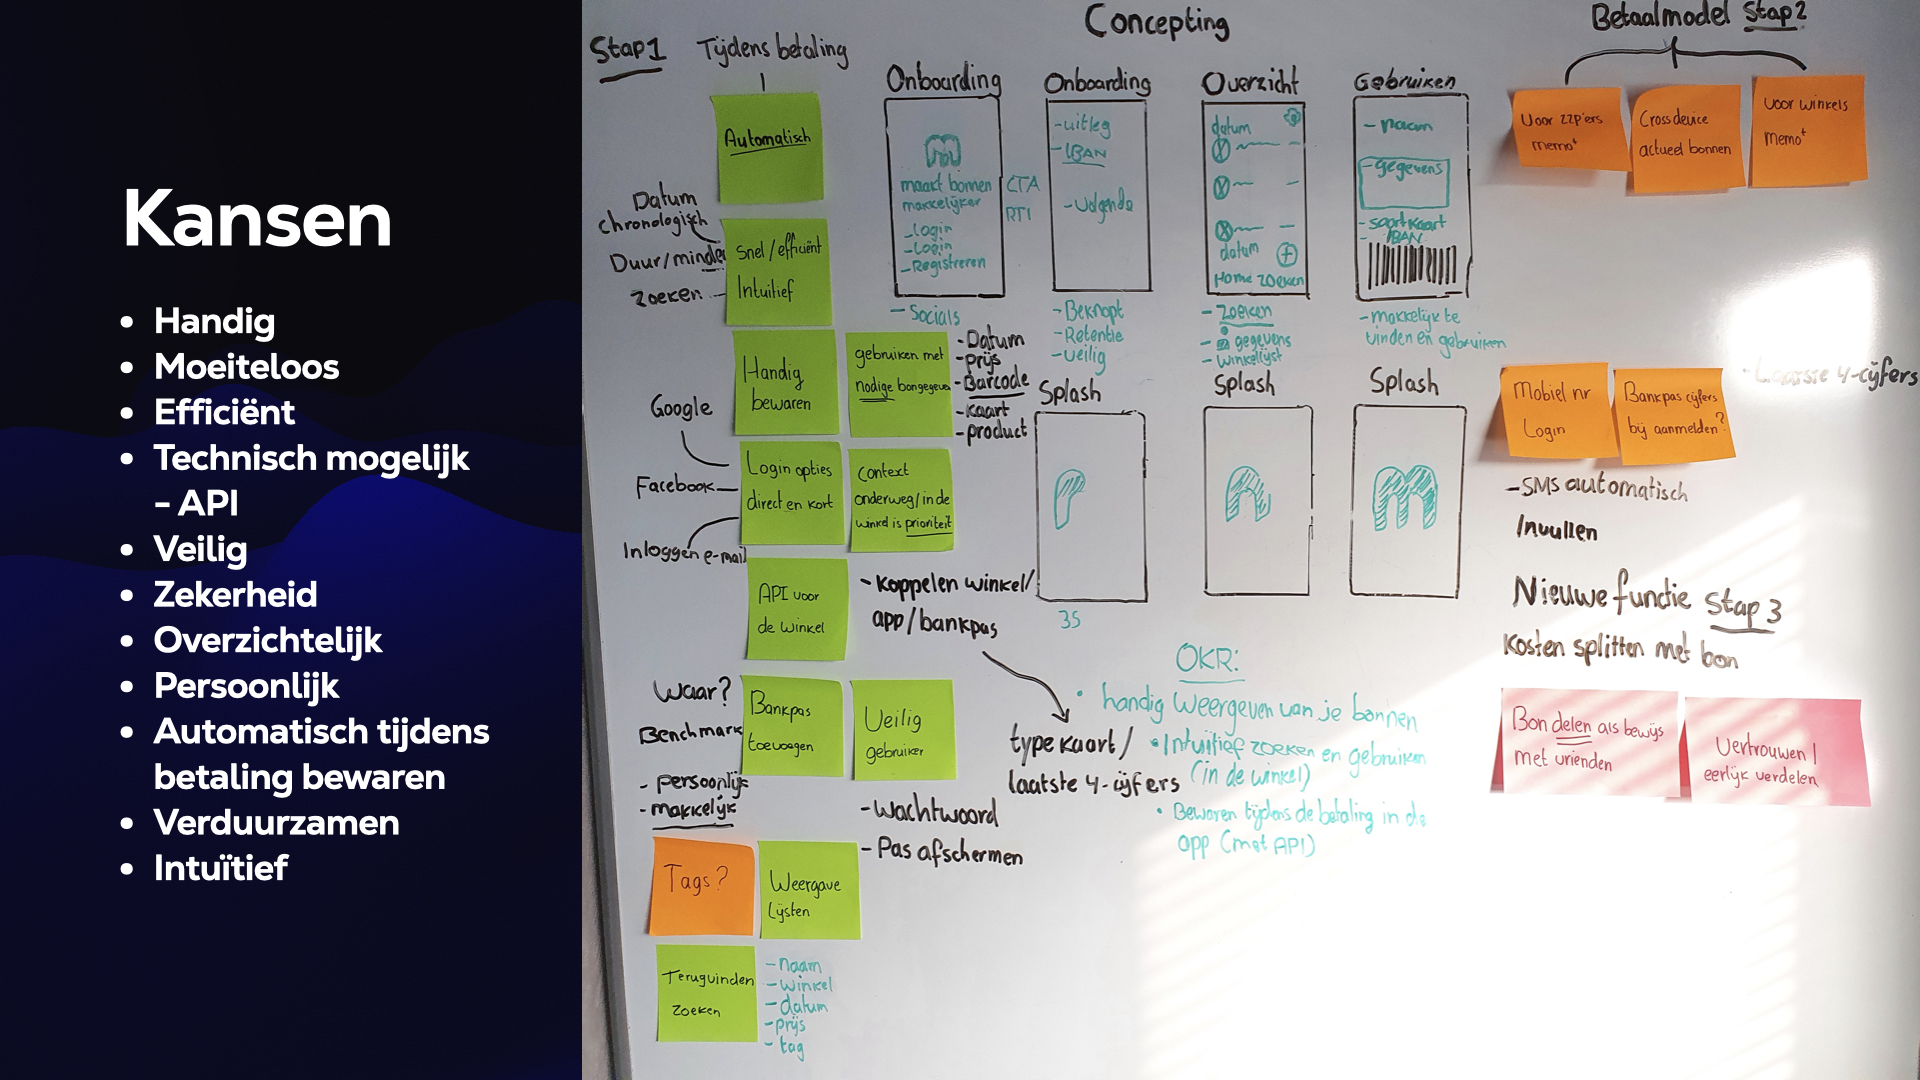 Kansen
• Handig
• Moeiteloos
• Efficiënt
• Technisch mogelijk
– API
• Veilig
• Zekerheid
• Overzichtelijk
• Persoonlijk
• Automatisch tijdens
betaling bewaren
• Verduurzamen
• Intuïtief
Concepting
Stap1
Tijdens betaling
Automatisch
Datum
chronologisch
Duur/minder
Zoeken
Snel/efficiënt
Intuitief
Handig
bewaren
gebruiken met
nodige bongegeven
- Datum
- prijs
- Barcode
- kaart
- product
Google
Facebook
Inloggen e-mail
Login opties
direct en kort
Context
onderweg/in de
winkel is prioriteit
API voor
de winkel
- Koppelen winkel/
app/bankpas
type kaart/
laatste 4-cijfers
Waar?
Benchmark
- persoonlijk
- makkelijk
Bankpas
toevoegen
Veilig
gebruiker
- Wachtwoord
- Pas afschermen
Tags?
Weergave
Lijsten
Terugvinden
Zoeken
- naam
- winkel
- datum
- prijs
- tag
Onboarding
m
maakt bonnen
makkelijker
- Login
- Login
- Registreren
CTA
RTI
- Socials
Onboarding
- uitleg
- IBAN
- Volgende
- Beknopt
- Retentie
- Veilig
Overzicht
datum
datum
Home Zoeken
- Zoeken
- gegevens
- winkellijst
Gebruiken
- naam
- gegevens
- soort kaart
- IBAN
- makkelijk te
vinden en gebruiken
Splash
r
3S
Splash
n
Splash
m
OKR:
• handig weergeven van je bonnen
• Intuitief zoeken en gebruiken
(in de winkel)
• Bewaren tijdens de betaling in de
app (met API)
Betaalmodel Stap2
Voor ZZP'ers
memo+
Cross device
actueel bonnen
Voor winkels
memo+
Mobiel nr
Login
Bankpas cijfers
bij aanmelden?
- Laatste 4-cijfers
- SMS automatisch
Invullen
Nieuwe functie Stap 3
Kosten splitten met bon
Bon delen als bewijs
met vrienden
Vertrouwen /
eerlijk verdelen